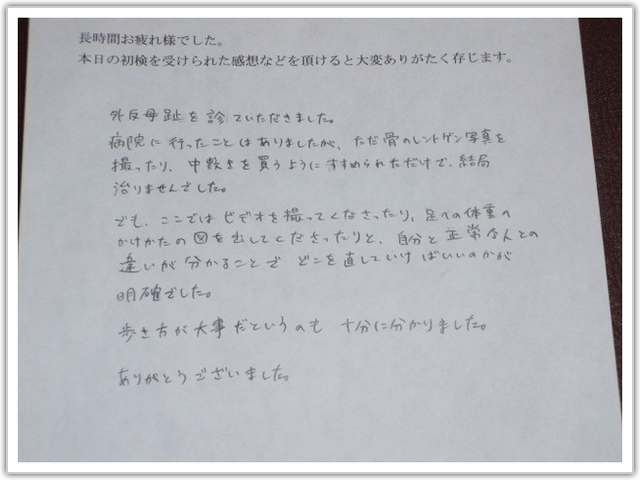 長時間お疲れ様でした。
本日の初検を受けられた感想などを頂けると大変ありがたく存じます。
外反母趾を診ていただきました。
病院に行ったことはありましたが、ただ骨のレントゲン写真を
撮ったり、中敷きを買うようにすすめられただけで、結局
治りませんでした。
でも、ここではビデオを撮ってくださったり、足への体重の
かけかたの図を出してくださったりと、自分と正常な人との
違いが分かることで どこを直していけばいいのかが
明確でした。
歩き方が大事だというのも 十分に分かりました。
ありがとうございました。